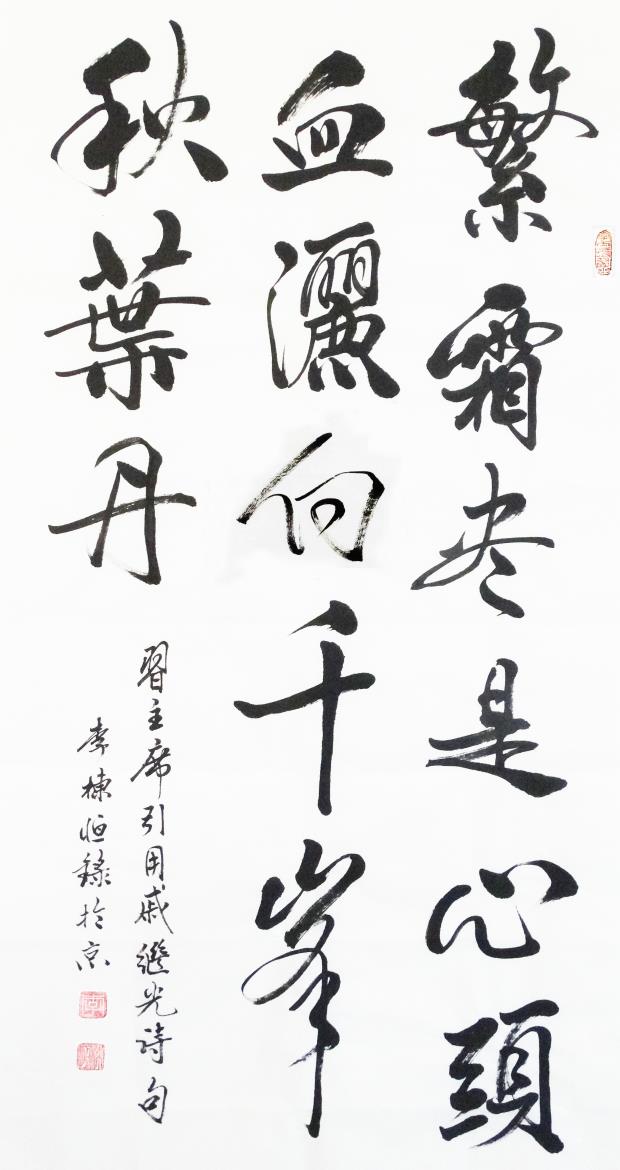 繁霜尽是心頭
血灑向千峯
秋葉丹
習主席引用戚繼光詩句
李棟恒録於京